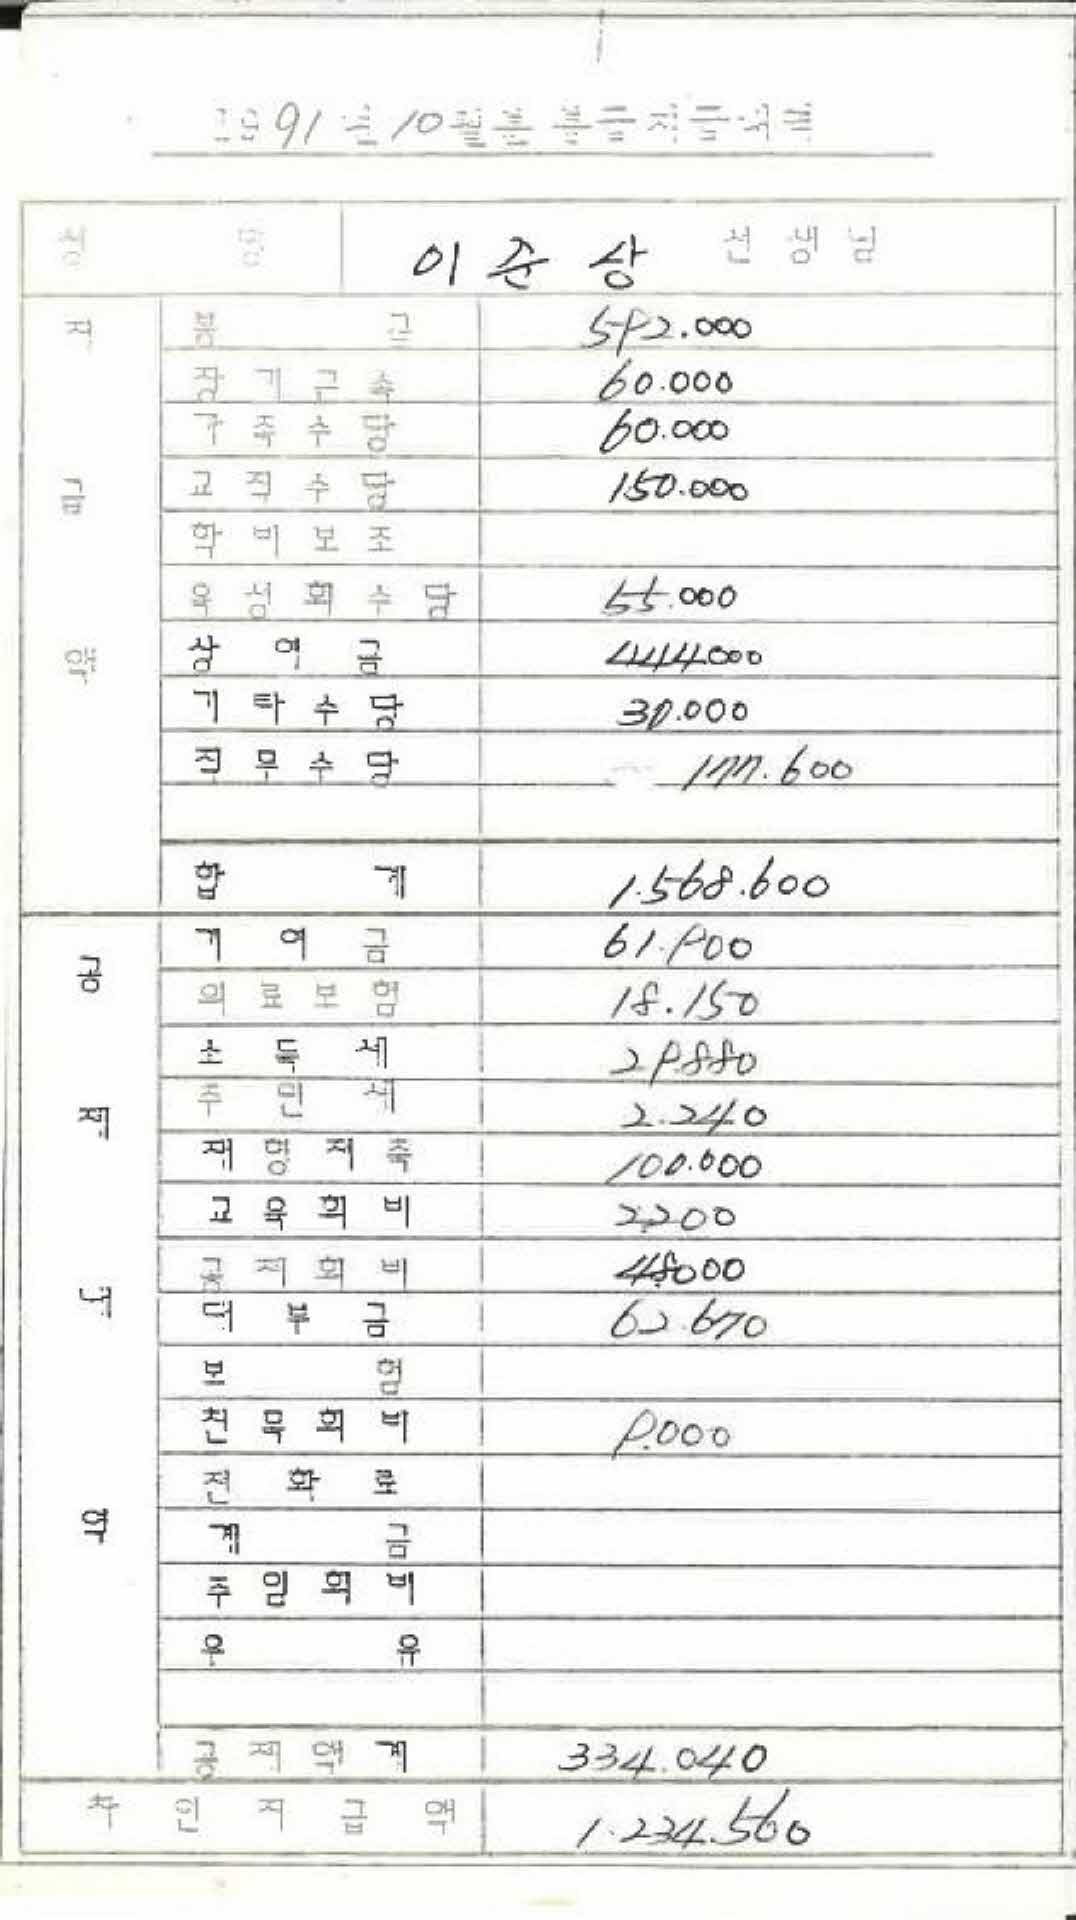 1991년 10월분 봉급지급명세표
성 명 이 준 상 선 생 님
지 급 액
봉 급 592.000
장 기 근 속 60.000
가 족 수 당 60.000
교 직 수 당 150.000
학 비 보 조
육 성 회 수 당 55.000
상 여 금 444.000
기 타 수 당 30.000
직 무 수 당 177.600
합 계 1.568.600
공 제 내 역
기 여 금 61.900
의 료 보 험 18.150
소 득 세 29.880
주 민 세 2.240
재 형 저 축 100.000
교 육 회 비 2.200
공 제 회 비 48.000
대 부 금 62.670
보 험
친 목 회 비 9.000
전 화 료
계 금
주 임 회 비
우 유
공 제 액 계 334.040
차 인 지 급 액 1.234.560